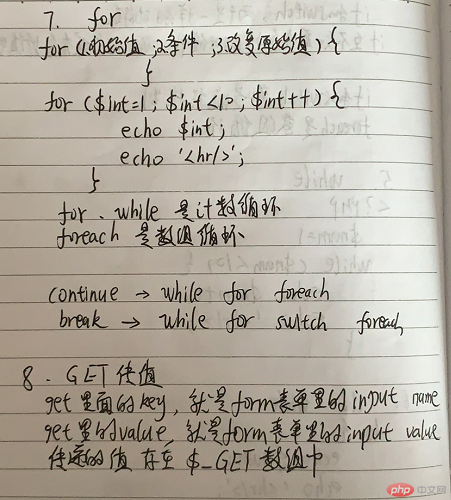 7. for
for (1.初始值 ; 2.条件 ; 3.改变原始值) {
}
for ($int=1; $int<10; $int++) {
echo $int;
echo '<hr/>';
}
for 、while 是计数循环
foreach 是数组循环
continue → while for foreach
break → while for switch foreach
8. GET传值
get里面的key, 就是form表单里的input name
get里的value, 就是form表单里的input value
传递的值 存在 $_GET数组中
php 中文网